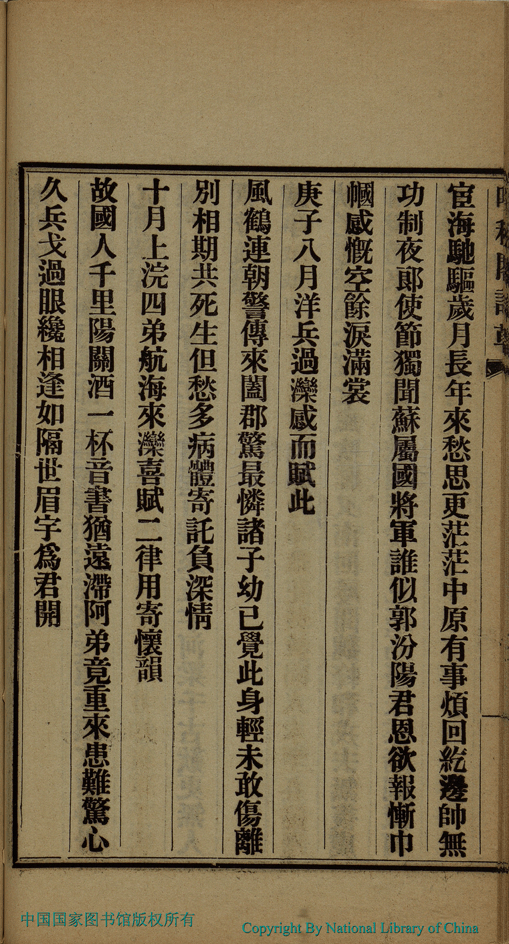 宦海馳驅歲月長年來愁思更茫茫中原有事煩回紇邊帥無
功制夜郎使節獨聞蘇屬國將軍誰似郭汾陽君恩欲報慚巾
幗感慨空餘淚滿裳
庚子八月洋兵過灤感而賦此
風鶴連朝警傳來闔郡驚最憐諸子幼已覺此身輕未敢傷離
別相期共死生但愁多病體寄託負深情
十月上浣四弟航海來灤喜賦二律用寄懷韻
故國人千里陽關酒一杯音書猶遠滯阿弟竟重來患難驚心
久兵戈過眼纔相逢如隔世眉宇為君開
中国国家图书馆版权所有
Copyright By National Library of China